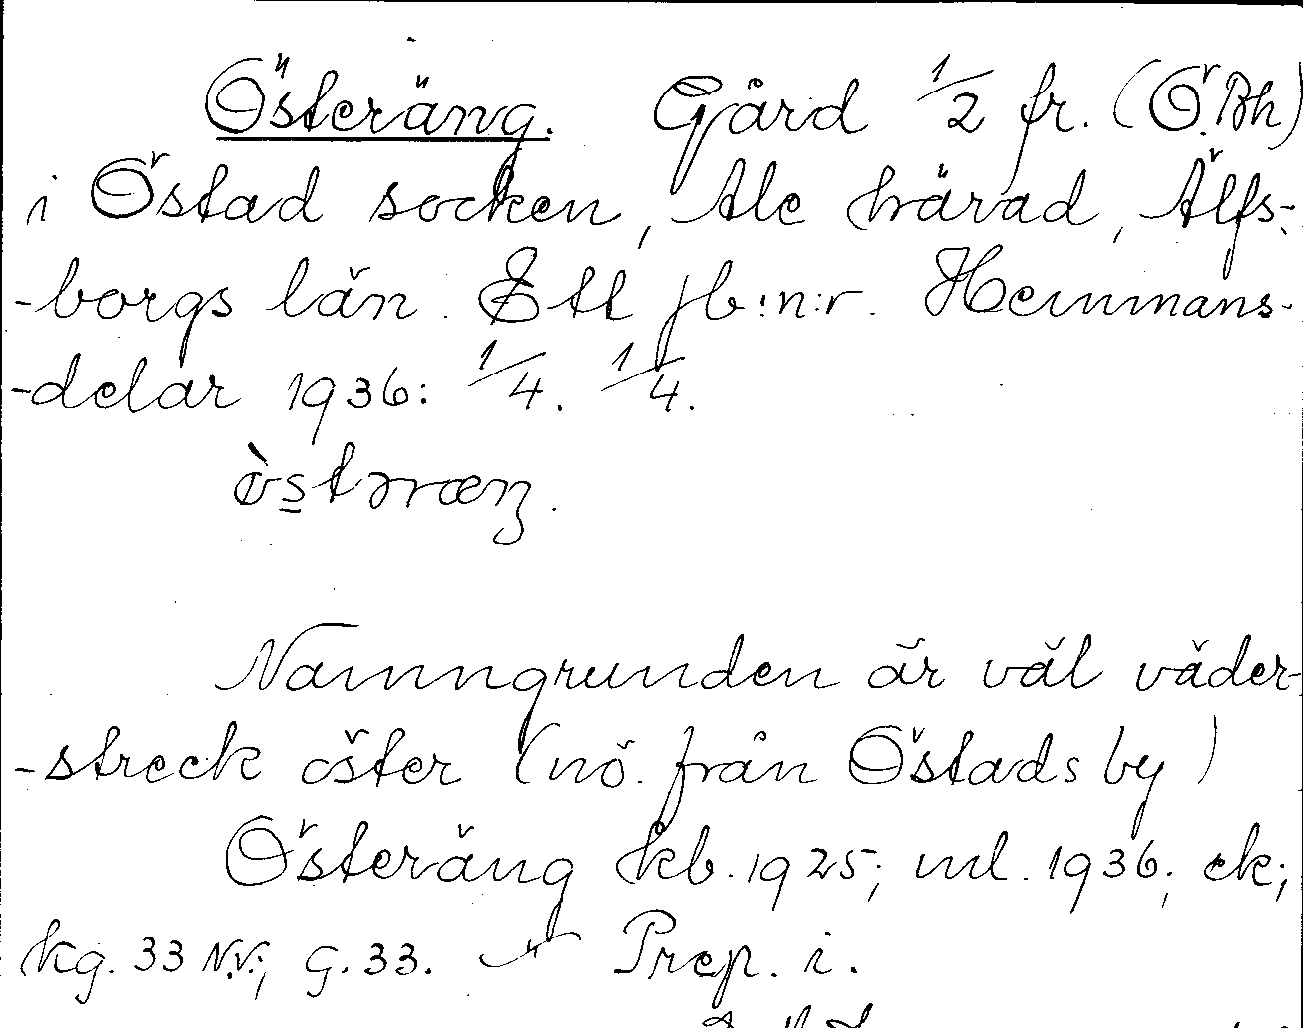 Österäng. Gård 1/2 fr. (Ö.Bh)
i Östad socken, Ale härad, Älfs-
-borgs län. Ett jb:n:r. Hemmans-
-delar 1936: 1/4. 1/4.
òstəræŋ.
Namngrunden är väl väder-
-streck öster (nö. från Östads by)
Österäng kb. 1925; ml. 1936; ek;
kg. 33 N.V.; G. 33. Prep. i.